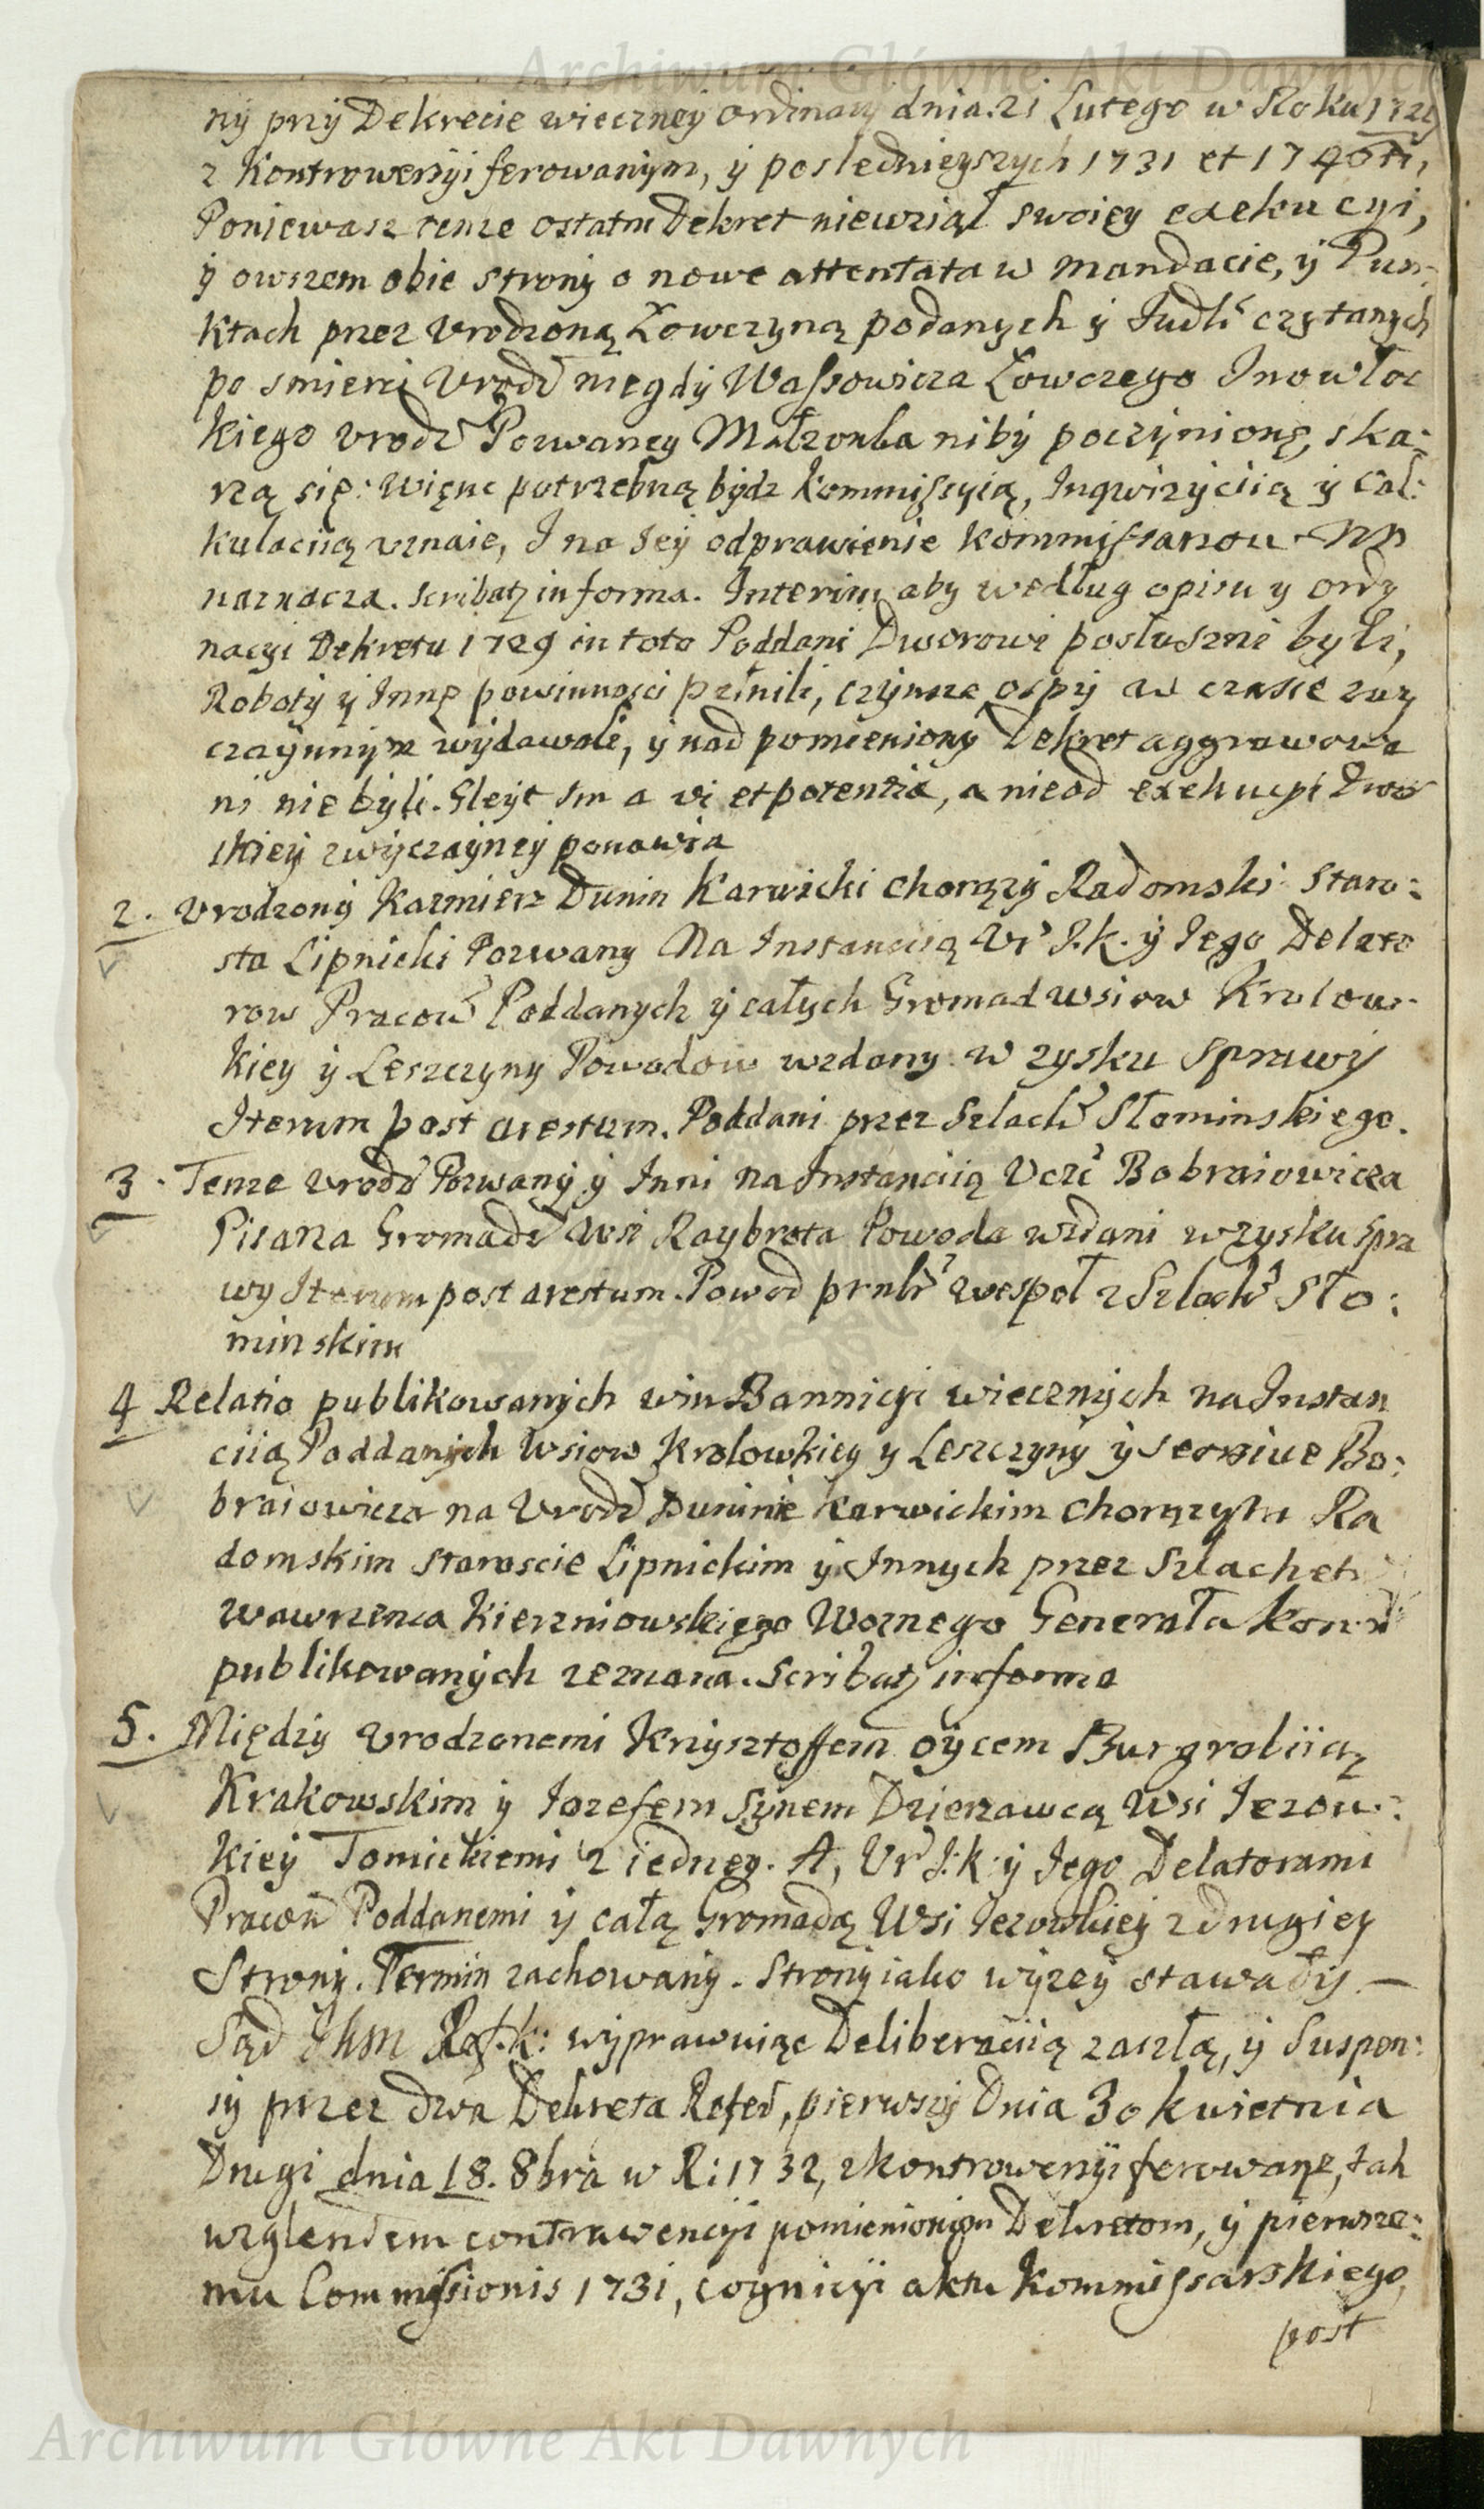 Archiwum Główne Akt Dawnych
ny przy Dekrecie wieczney ordinacyi dnia 21 Lutego w Roku 1729
z Kontrowersyi ferowanym, y poslednieyszych 1731 et 1740
Poniewasz tenze ostatni Dekret niewziął swoiey exekucyi,
y owszem obie strony o nowe attentata w mandacie, y Pun:
ktach przez Vrodzoną Łowczyną podanych y Judłr czytanych
po smierci Vrodz niegdy Wassowicza Łowczego Inowłoc
kiego vrodz Pozwaney Małzonka niby poczynionę, ska:
rzą się: Więnc potrzebną bydz Kommissyią, Inqwizyciią y Cal:
kulaciią vznaie, I na Iey odprawienie Kommissarzow NN
naznacza. Scribatz in forma. Interim aby według opisu y ordy
nacyi Dekretu 1729 in toto Poddani Dworowi posłuszni byli,
Roboty y Innę powinnosci pełnili, czynsze ospy w czasie zwy
czaynnym wydawali, y nad pomieniony Dekret aggrawowa
ni nie byli. Gleyt Sm a vi et potentia, a nieod exekucyi Dwor
skiey zwyczayney ponawia
2. Vrodzony Kazmierz Dunin Karwicki Chorązy Radomski Staro:
sta Lipnicki Pozwany Na Instanciią Vr I.K. y Iego Delato
row Pracow Poddanych y całych Gromad wsiow Krolow
kiey y Leszczyny Powodow wzdany w zysku Sprawy
Iterum post arestum. Poddani przez Szlach Słominskiego.
3. Tenze vrodz Pozwany y Inni na Instanciią Vczć Bobraiowicza
Pisarza Gromadz Wsi Raybrota Powoda wzdani w zysku Spra
wy Iterum post arestum. Powod przez zwespoł z Szlach Sło:
minskim
4 Relatio publikowanych win Bannicyi wiecznych na Instan
ciią Poddanych Wsiow Krolowkiey y Leszczyny y seorsive Bo:
braiowicza na Vrodz Duninie Karwickim Chorązym Ra
domskim Staroscie Lipnickim y Innych przez Szlachet
Wawrzenca Kierzniowskiego Woznego Generała
publikowanych zeznana. Scribatz in forma
5. Między Vrodzonemi Krzysztoffem oycem Burgrabiią
Krakowskim y Iozefem Synem Dzierzawcą Wsi Iezow:
kiey Tomickiemi z iedney. A, Vr I:K: y Iego Delatorami
Pracow Poddanemi y całą Gromadą Wsi Iezowkiey z drugiey
Strony. Termin zachowany. Strony iako wyzey stawały. —
Sąd IKM Ref.K: wyprawuiąc Deliberaciią zaszłą, y Suspen:
sy przez dwa Dekreta Refer, pierwszy Dnia 30 kwietnia
Drugi dnia 18. 8bra w R: 1732, z kontrowersyi ferowanę, tak
względem contrawencyi pomienionym Dekretom, y pierwsze:
mu Commissionis 1731, cognicyi aktu Kommissarskiego,
post
Archiwum Główne Akt Dawnych